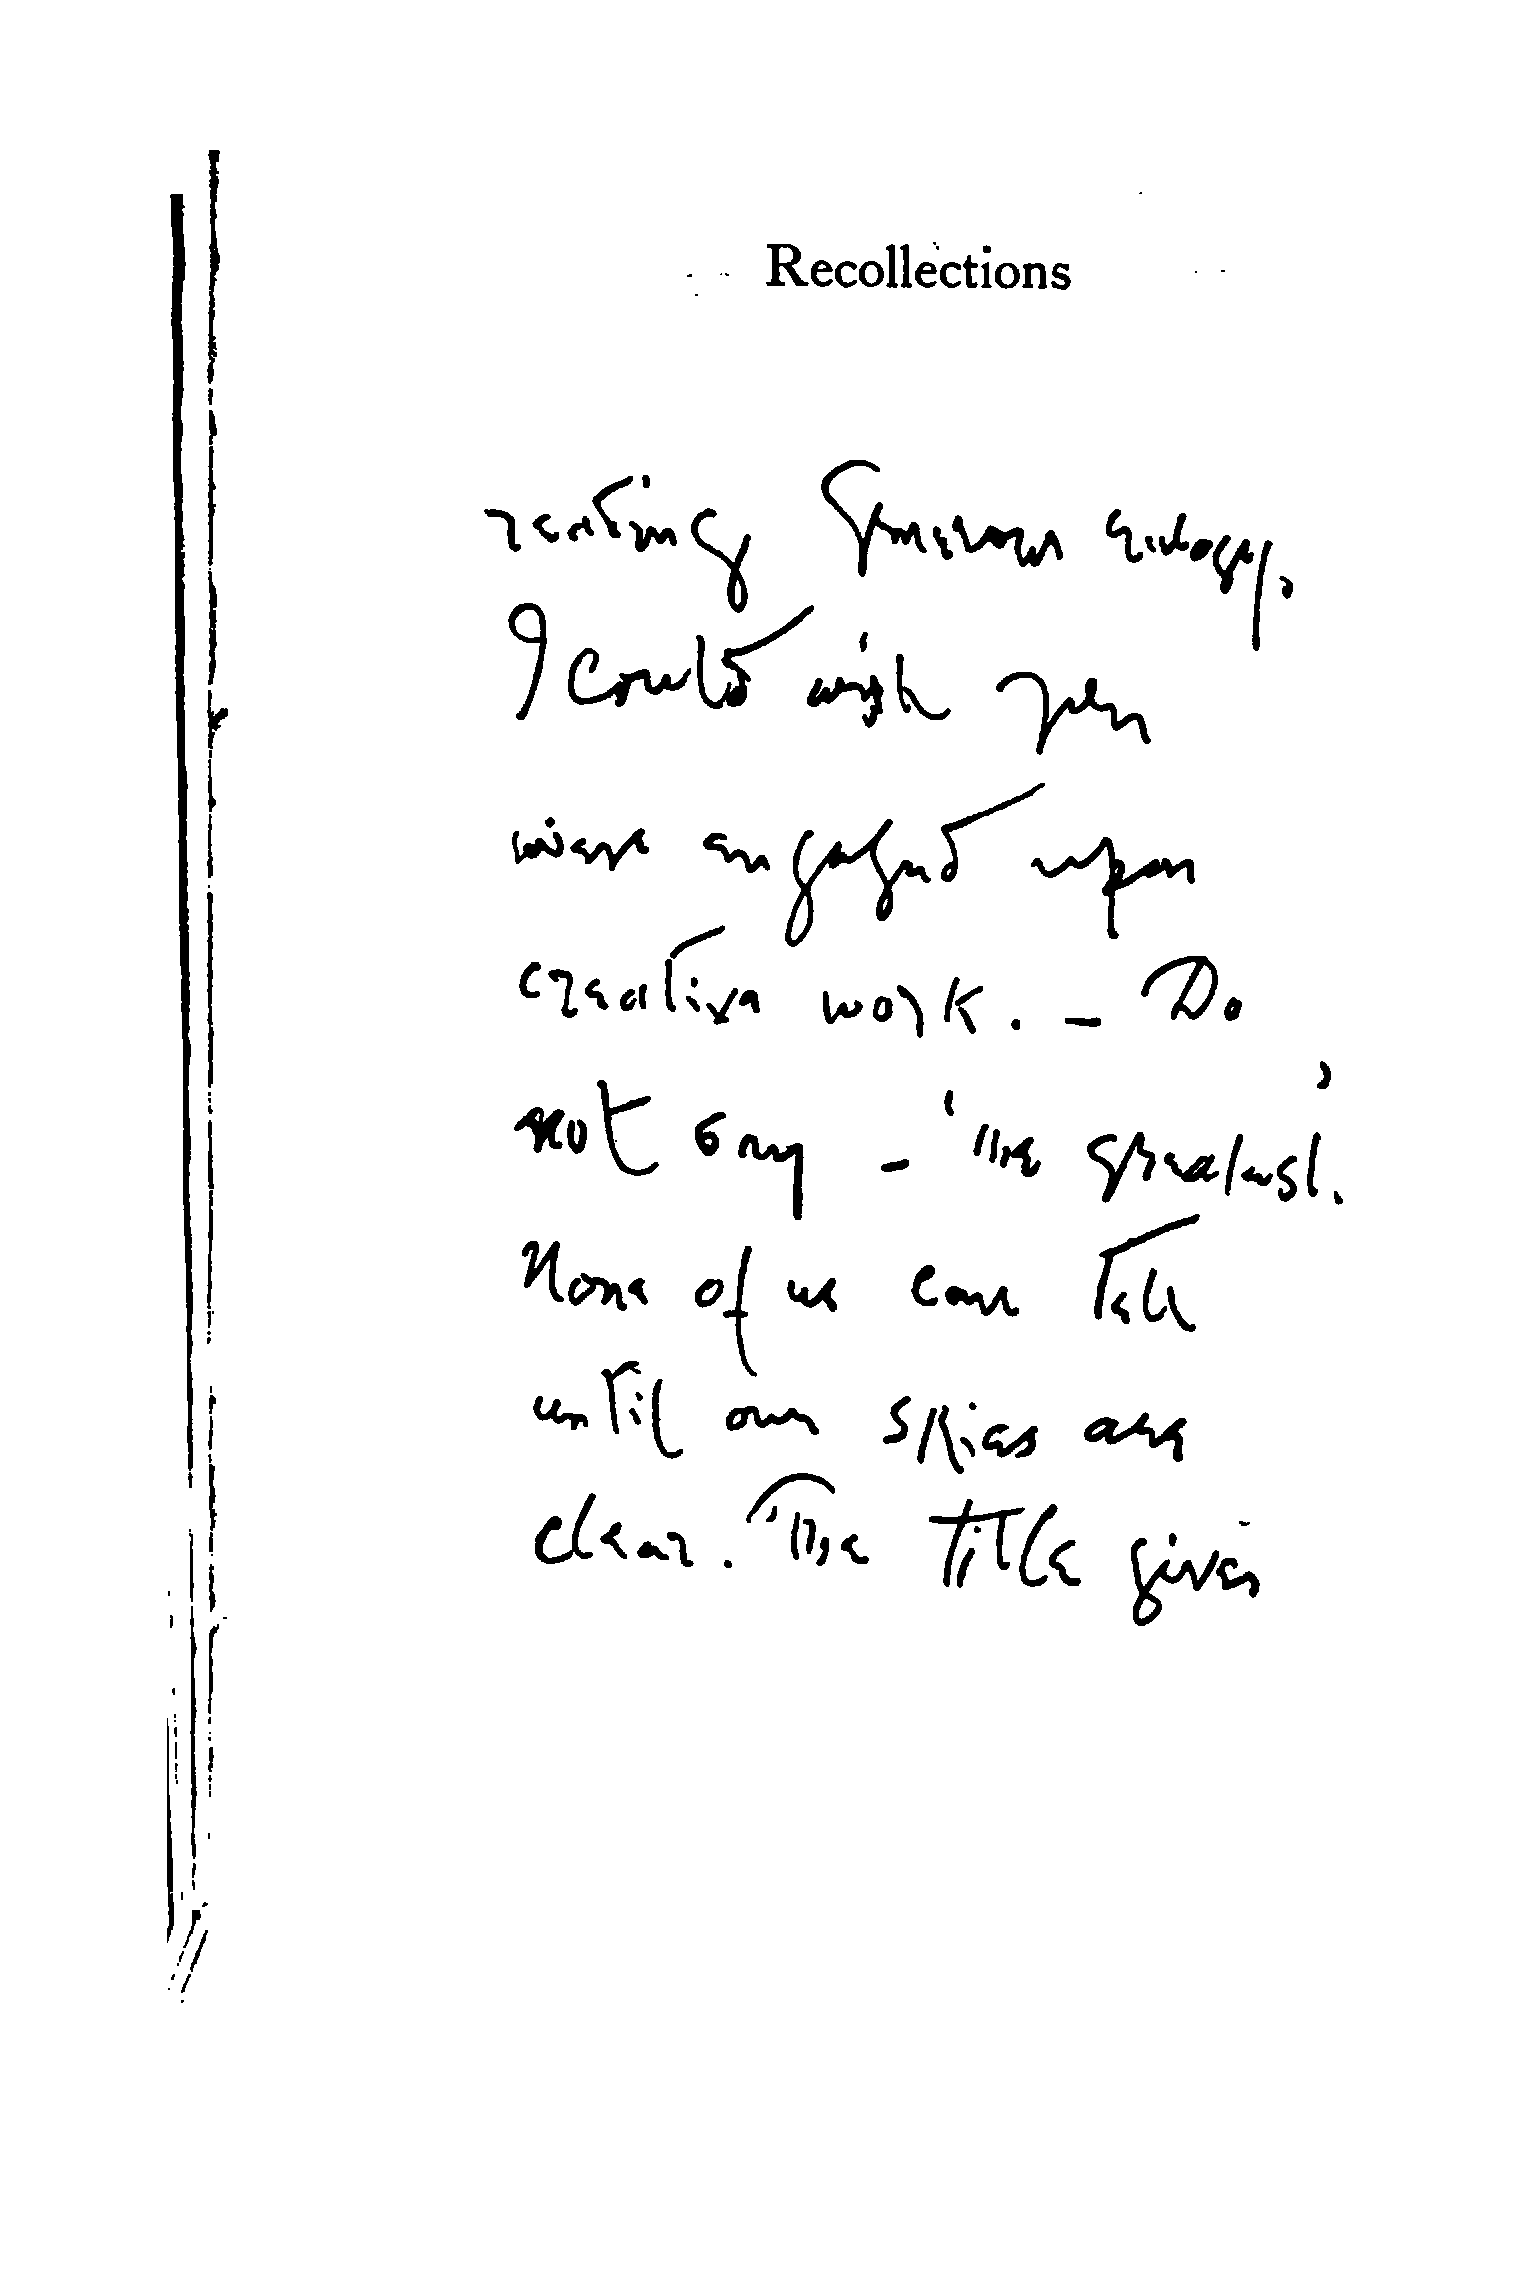 Recollections
generous eulogy,
I could wish you
were engaged upon
creative work. – Do
not say – 'the greatest'.
None of us can tell
until our skies are
clear. The title gives